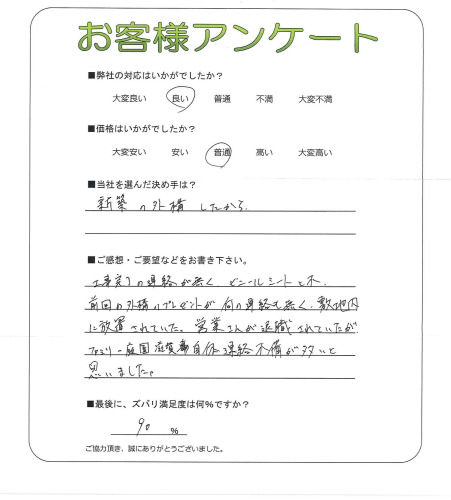 お客様アンケート
■弊社の対応はいかがでしたか？
大変良い 良い 普通 不満 大変不満
■価格はいかがでしたか？
大変安い 安い 普通 高い 大変高い
■当社を選んだ決め手は？
新築の外構したから
■ご感想・ご要望などをお書き下さい。
工事完了の連絡が無く、ビニールシートと木、
前回の外構のプレゼントが何の連絡も無く、敷地内
に放置されていた。営業さんが退職されていたが
ファミリー庭園滋賀 自体連絡不備が多いと
思いました。
■最後に、ズバリ満足度は何％ですか？
90 ％
ご協力頂き、誠にありがとうございました。